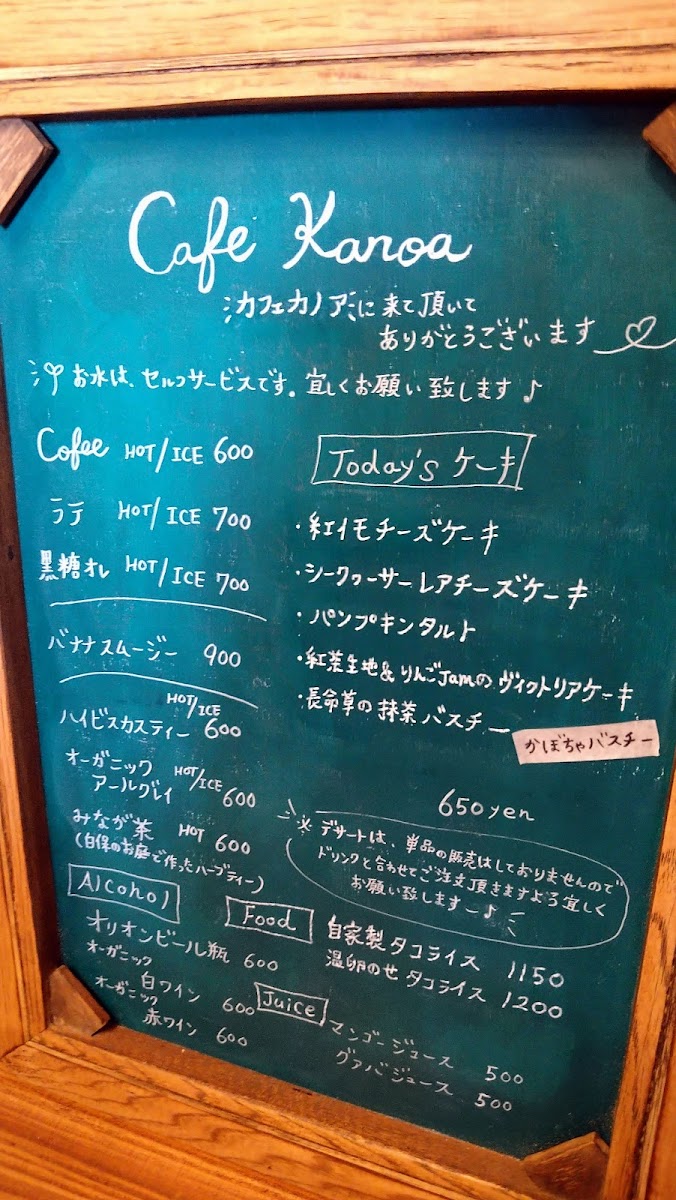 Cafe Kanoa
カフェカノアに来て頂いて
ありがとうございます
お水は、セルフサービスです。宜しくお願い致します♪
Cofee HOT/ICE 600
ラテ HOT/ICE 700
黒糖オレ HOT/ICE 700
バナナスムージー 900
HOT/ICE
ハイビスカスティー 600
オーガニック
アールグレイ HOT/ICE 600
みなが茶 HOT 600
(白保のお庭で作ったハーブティー)
Alcohol
オリオンビール瓶 600
オーガニック
白ワイン 600
オーガニック
赤ワイン 600
Today's ケーキ
・紅イモチーズケーキ
・シークヮーサーレアチーズケーキ
・パンプキンタルト
・紅茶生地&りんごJamのヴィクトリアケーキ
・長命草の抹茶バスチー
かぼちゃバスチー
650yen
※デザートは、単品の販売はしておりませんので
ドリンクと合わせてご注文頂きますよう宜しく
お願い致しますー♪
Food
自家製タコライス 1150
温卵のせタコライス 1200
Juice
マンゴージュース 500
グァバジュース 500